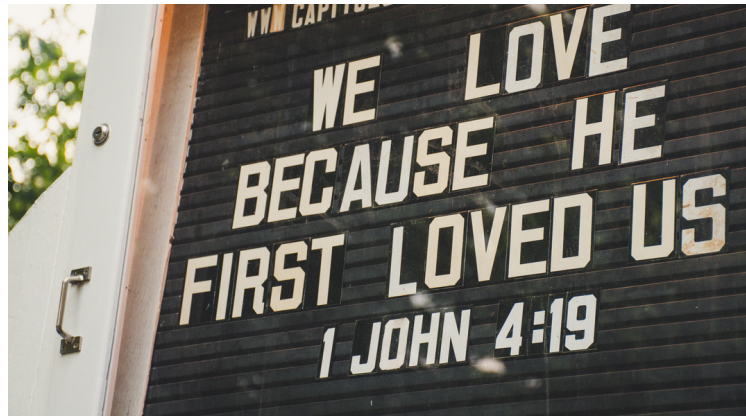 WE LOVE
BECAUSE HE
FIRST LOVED US
1 JOHN 4:19